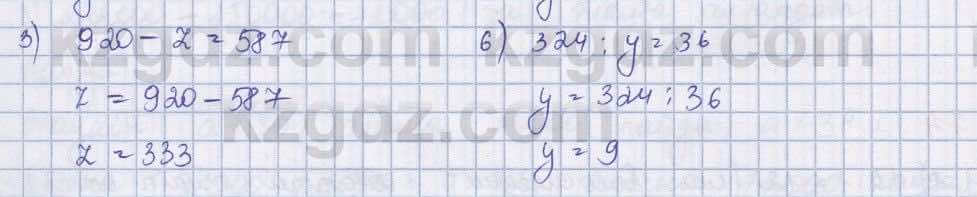 3) 920 - z = 587
z = 920 - 587
z = 333
6) 324 : y = 36
y = 324 : 36
y = 9
kzgdz.com kzgdz.com
kzgdz.com